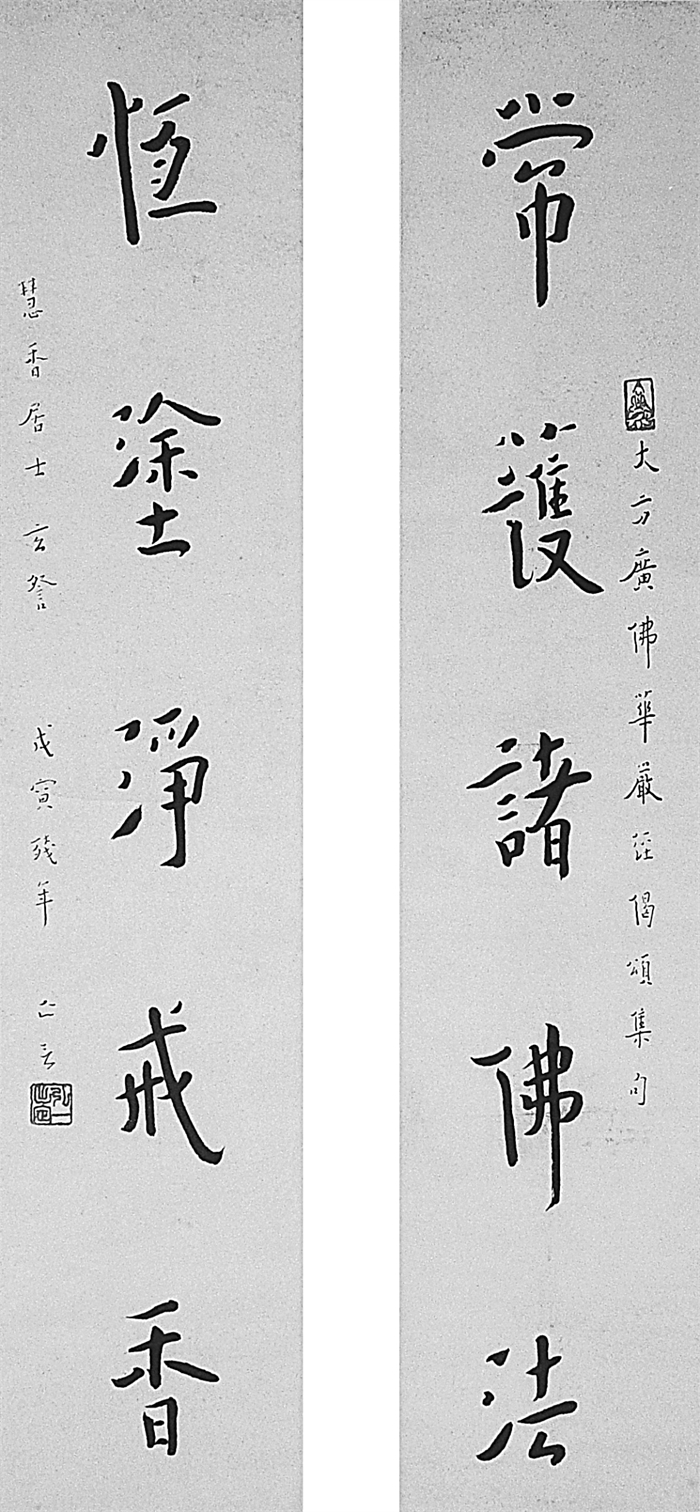 大方廣佛華嚴經偈頌集句
常護諸佛法
恆塗淨戒香
慧香居士玄詧
戊寅殘年
亡言
弘一